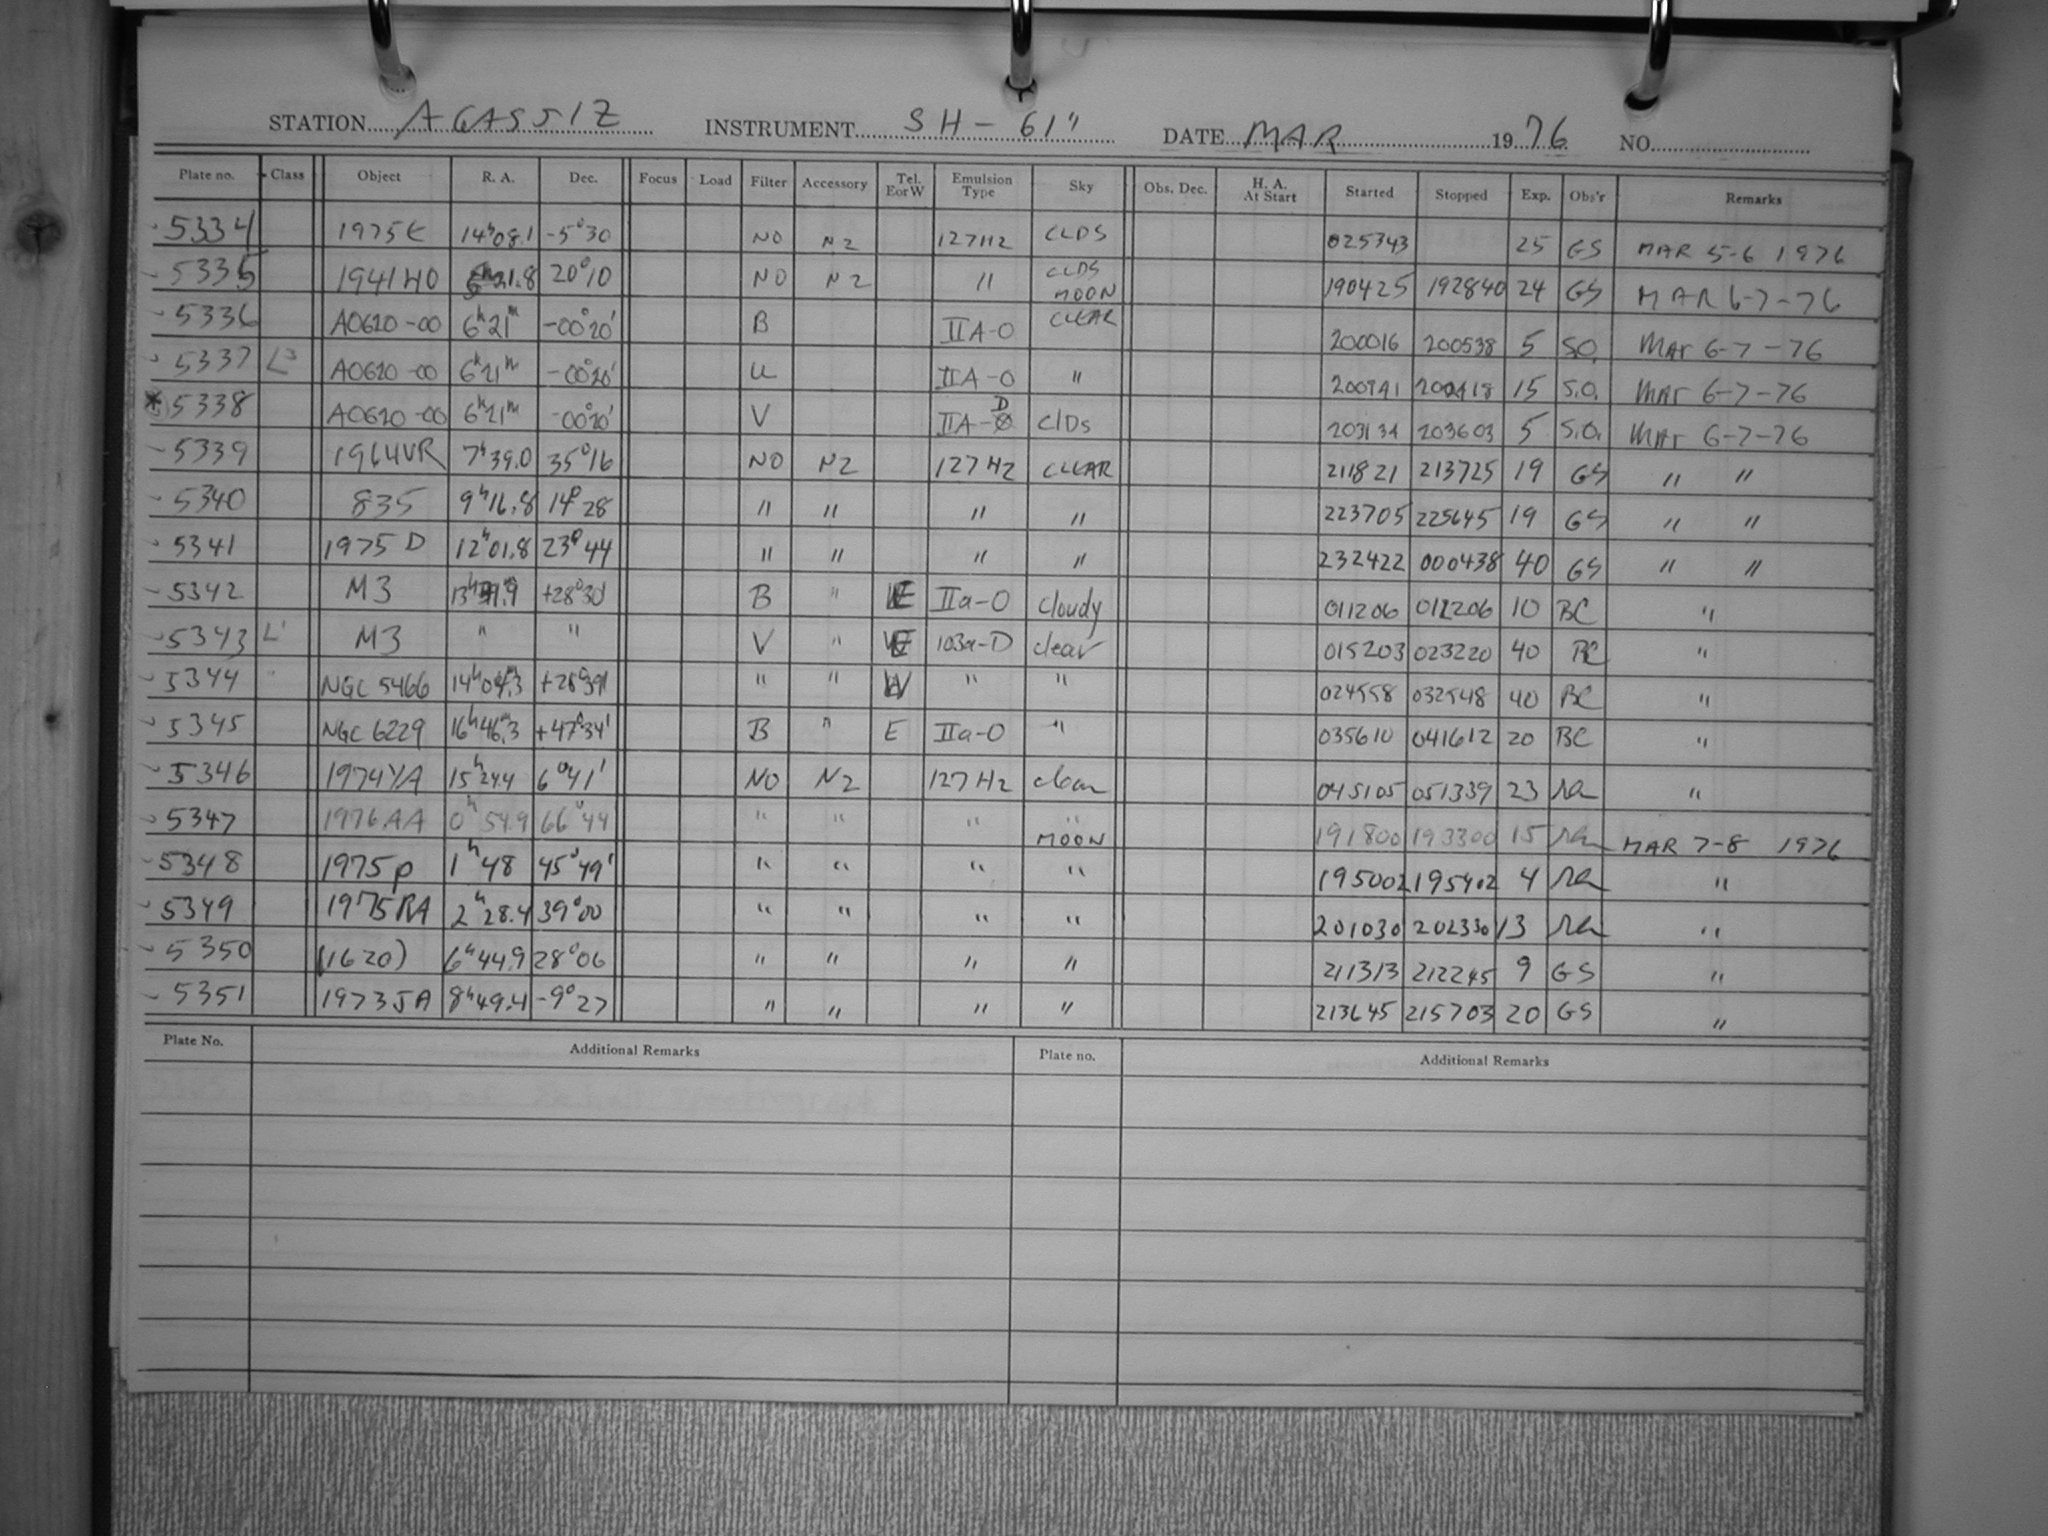 STATION AGASSIZ INSTRUMENT SH-61" DATE MAR 1976 NO.
Plate no. Class Object R. A. Dec. Focus Load Filter Accessory Tel. E or W Emulsion Type Sky Obs. Dec. H. A. At Start Started Stopped Exp. Obs'r Remarks
5334 1975E 14h08.1 -5°30 NO N2 127H2 CLDS 025343 25 GS MAR 5-6 1976
5335 1941HO 21.8 20°10 NO N2 " CLDS MOON 190425 192840 24 GS MAR 6-7-76
5336 A0620-00 6h21m -00°20' B IIA-O CLEAR 200016 200538 5 S.O. Mar 6-7-76
5337 L3 A0620-00 6h21m -00°20' U IIA-O " 15 S.O. Mar 6-7-76
*5338 A0620-00 6h21m -00°20' V IIA-D ClDs 203134 203603 5 S.O. Mar 6-7-76
5339 1964VR 7h39.0 35°16 NO N2 127H2 CLEAR 211821 213725 19 GS " "
5340 835 9h16.8 14°28 " " " " 223705 225645 19 GS " "
5341 1975D 12h01.8 23°44 " " " " 232422 000438 40 GS " "
5342 M3 +28°30' B " E IIa-O cloudy 011206 012206 10 BC "
5343 L1 M3 " " V " E 103a-D clear 015203 023220 40 BC "
5344 NGC 5466 14h04m.3 +28°39' " " W " " 024558 032548 40 BC "
5345 NGC 6229 16h46m.3 +47°34' B " E IIa-O " 035610 041612 20 BC "
5346 1974YA 15h24.4 6°41' NO N2 127H2 clear 045105 051339 23 RA "
5347 1976AA 0h54.9 66°44 " " " " MOON 191800 193300 15 RA MAR 7-8 1976
5348 1975p 1h48 45°49' " " " " 195002 195402 4 RA "
5349 1975RA 2h28.4 39°00 " " " " 201030 202330 13 RA "
5350 (1620) 6h44.9 28°06 " " " " 211313 212245 9 GS "
5351 1973JA 8h49.4 -9°27 " " " " 213645 215703 20 GS "
Plate No. Additional Remarks Plate no. Additional Remarks